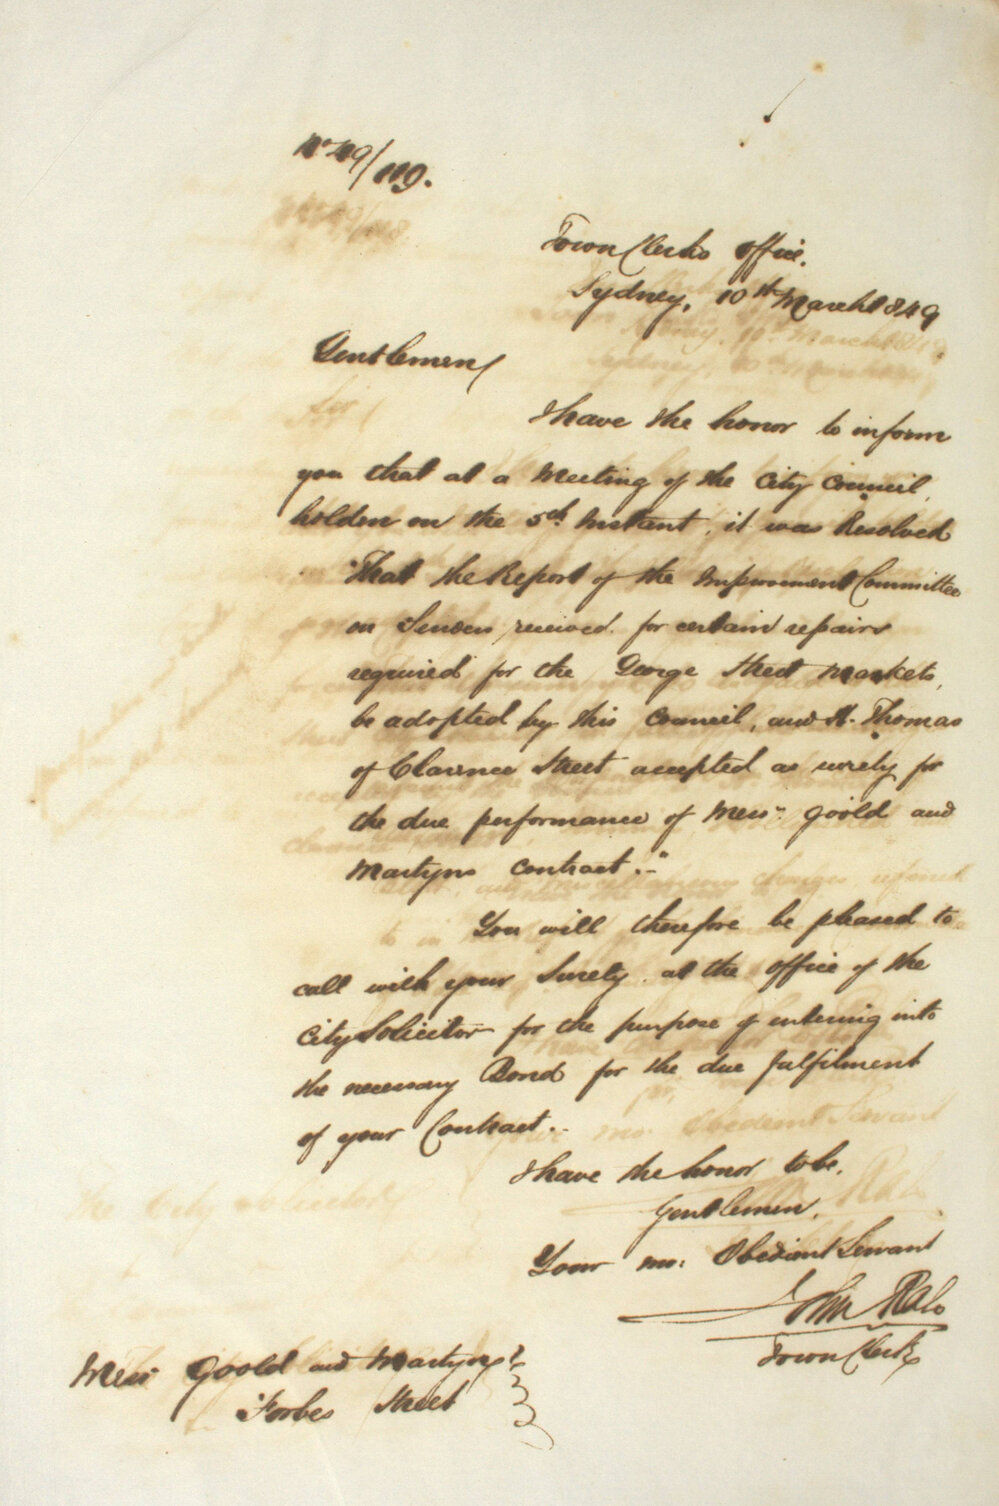 No 49/119.
Town Clerks Office.
Sydney, 10th March 1849
Gentlemen
I have the honor to inform
you that at a Meeting of the City Council,
holden on the 5th Instant, it was Resolved
"That the Report of the Improvement Committee
on Tenders received for certain repairs
required for the George Street Markets,
be adopted by this Council, and H. Thomas
of Clarence Street accepted as surety for
the due performance of Messrs Goold and
Martyns Contract."
You will therefore be pleased to
call with your Surety at the office of the
City Solicitor for the purpose of entering into
the necessary Bond for the due fulfilment
of your Contract.
I have the honor to be,
Gentlemen,
Your mo: Obedient Servant
John Rae
Town Clerk
Messrs Goold and Martyn
Forbes Street